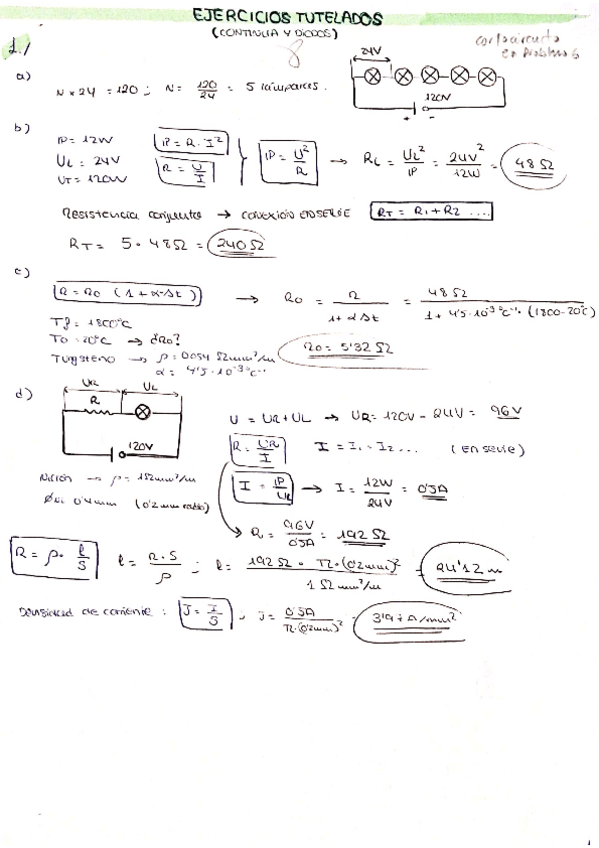 EJERCICIOS TUTELADOS
(CONTINUA Y DIODOS)
8
cortocircuito
en problema 6
1./
a)
N × 24 = 120 ; N = 120/24 = 5 lámparas.
24V
120V
+ -
b)
P = 12W
UL = 24V
UT = 120V
P = R · I²
R = U/I
P = U²/R → RL = UL²/P = 24V²/12W = 48 Ω
Resistencia conjunto → CONEXIÓN EN SERIE RT = R1 + R2 ....
RT = 5 · 48 Ω = 240 Ω
c)
R = R0 (1 + α · Δt) → R0 = R/1 + α Δt = 48 Ω/1 + 4'5 · 10⁻³ °C⁻¹ · (1800 - 20°C)
Tf = 1800°C
T0 = 20°C → ¿R0?
R0 = 5'32 Ω
Tungsteno → ρ = 0'054 Ω mm²/m
α = 4'5 · 10⁻³ °C⁻¹
d)
UR UL
R
120V
U = UR + UL → UR = 120V - 24V = 96V
R = UR/I I = I1 = I2 ... (En serie)
Nicrón → ρ = 1 Ω mm²/m
0'4mm (0'2mm radio)
I = P/UL → I = 12W/24V = 0'5A
R = 96V/0'5A = 192 Ω
R = ρ · l/S l = R · S/ρ ; l = 192 Ω · π · (0'2mm)²/1 Ω mm²/m = 24'12 m
Densidad de corriente : J = I/S ; J = 0'5A/π · (0'2mm)² = 3'97 A/mm²